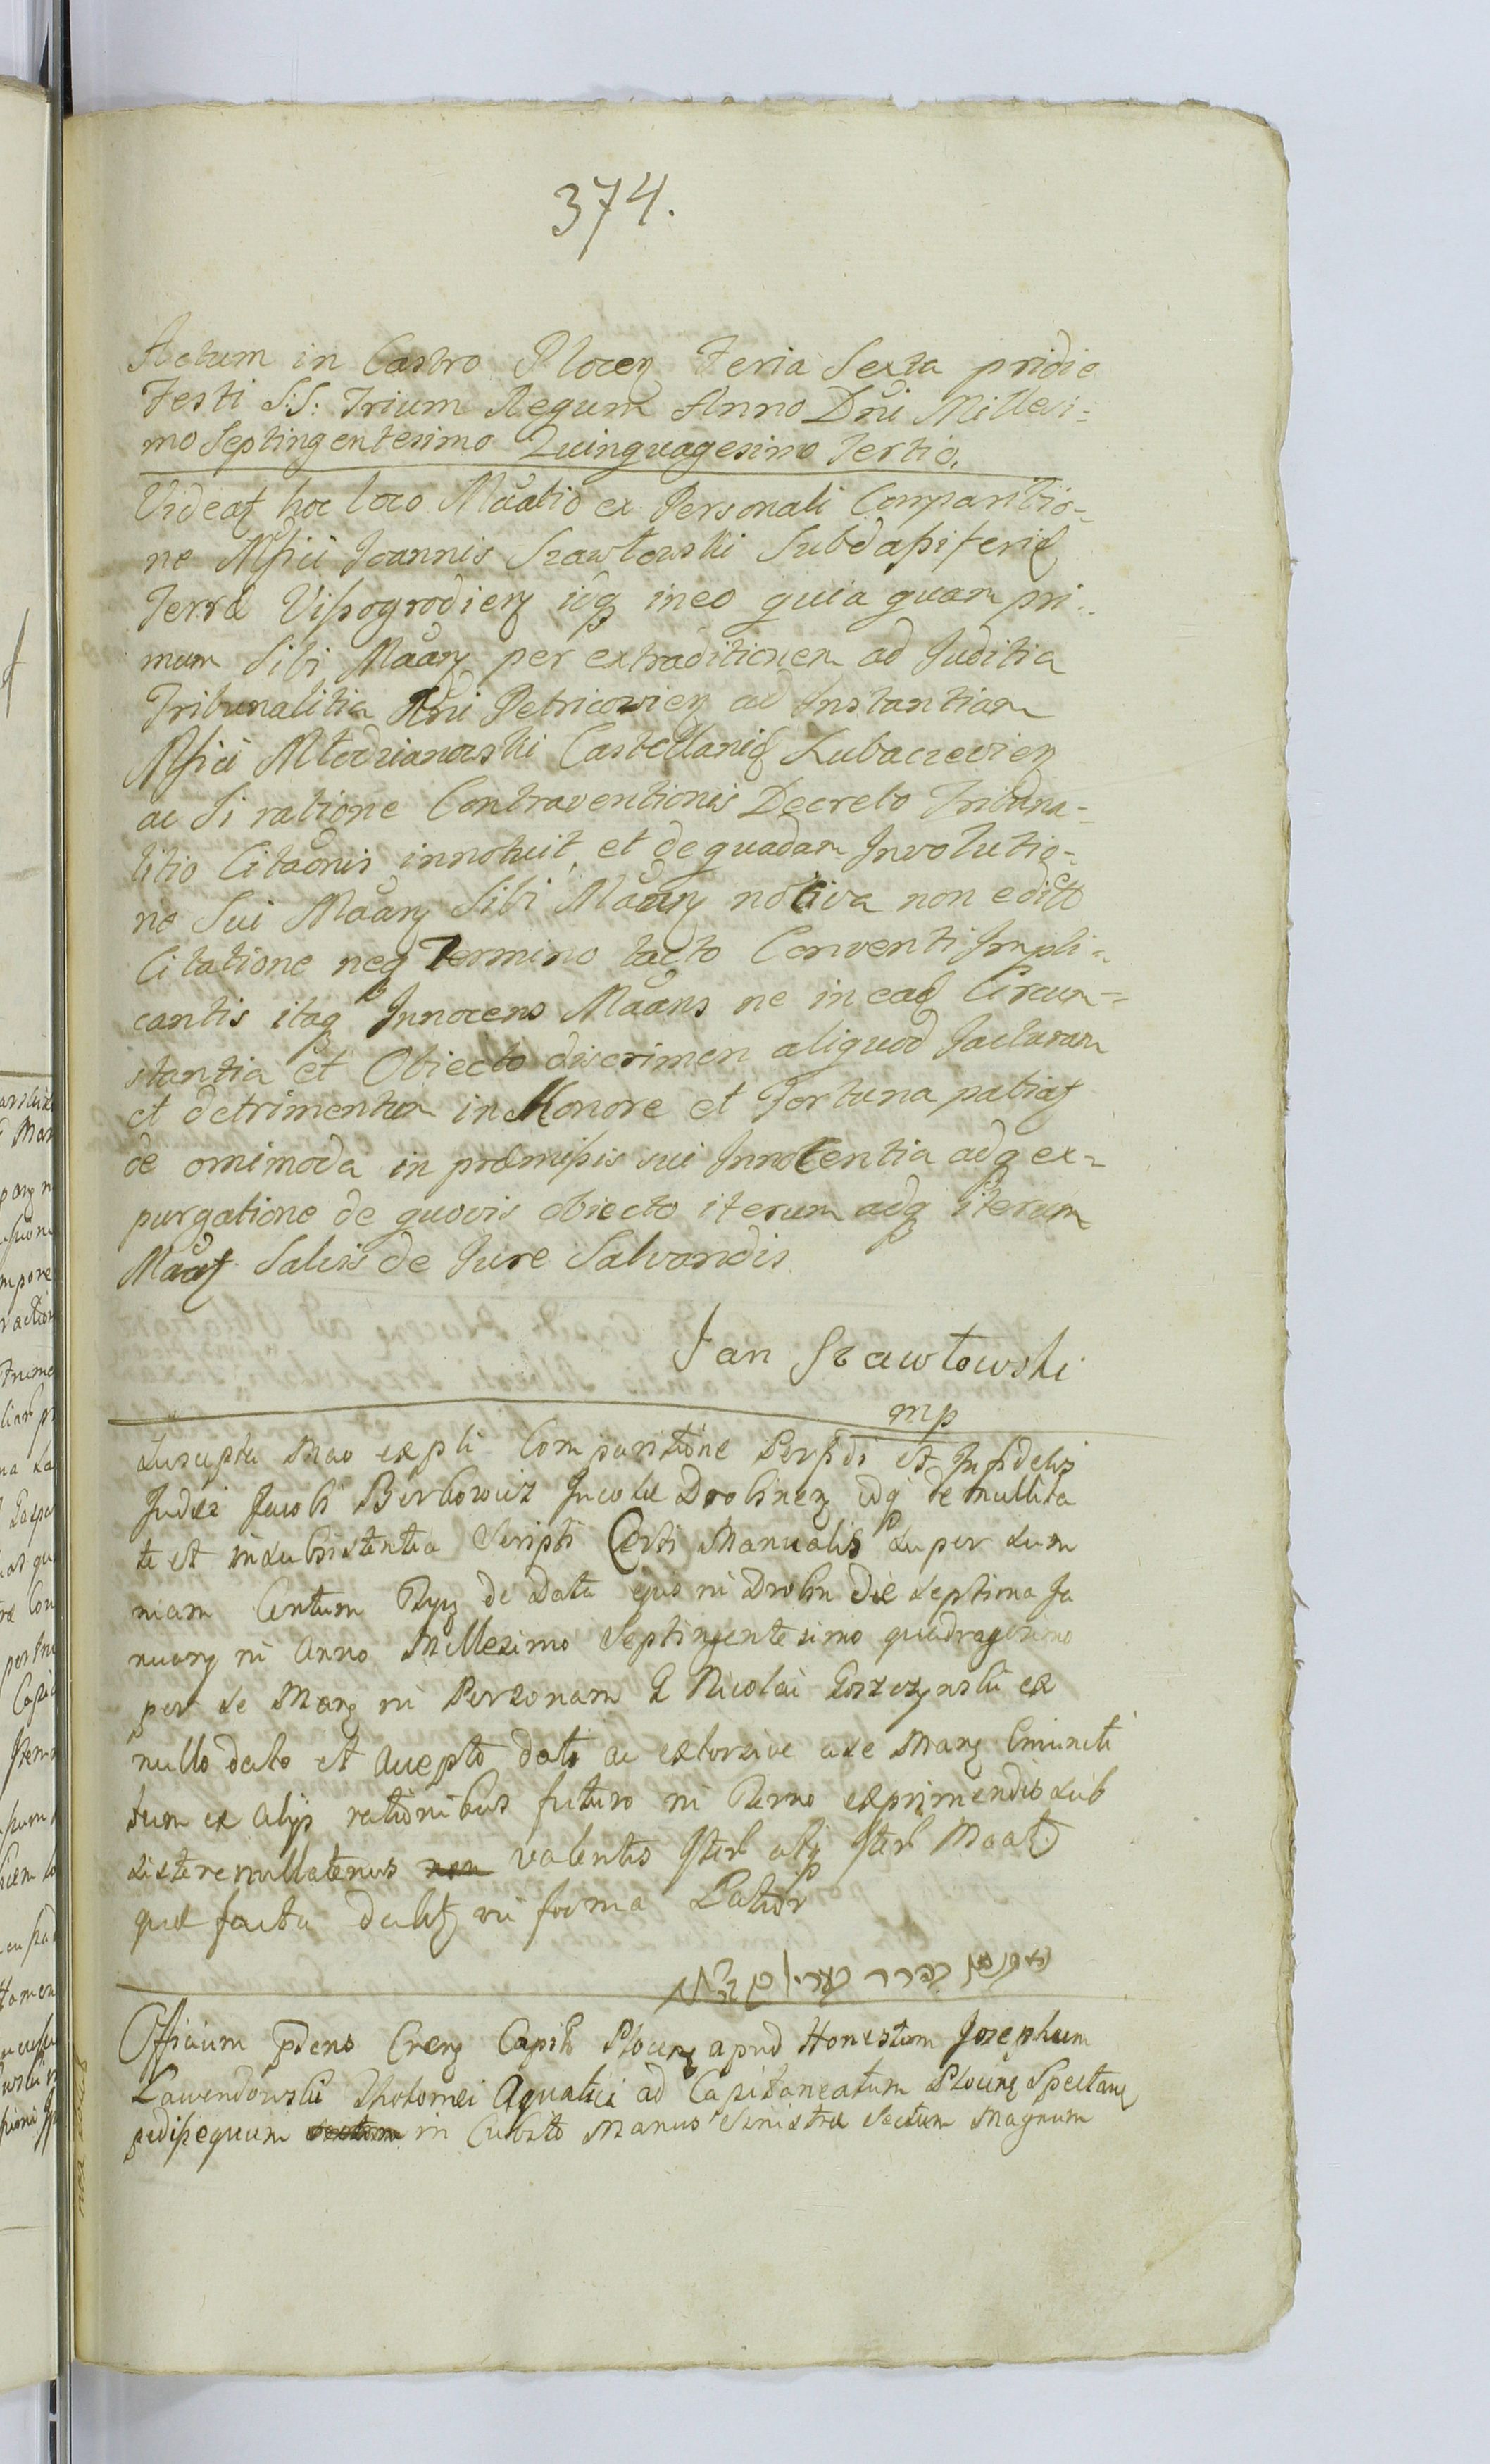 374.
Actum in Castro Plocen Feria Sexta pridie
Festi S:S: Trium Regum Anno Dñi Millesi-
mo Septingentesimo Quinquagesimo Tertio.
Videat hoc loco Maãtio ex Personali Comparitio-
ne Mfici Joannis Szawłowski Subdapiferid
Terræ Vissogrodien idq ineo quia quam pri-
mum Sibi Maãn per extraditionem ad Juditia
Tribunalitia Rni Petricovien ad Instantiam
Mfici Młodzianowski Castellanid Lubaczevien
ac Si ratione Contraventionis Decreto Tribuna-
litio Citaõnis innotuit, et de quadam Involutio-
ne Sui Maãn Sibi Maãn nõtiva non edicto
Citatione neq Termino tacto Conventi Impli-
cantis itaq Innocens Maãns ne in ead Circum-
stantia et Obiecto discrimen aliquod Jacturam
et detrimentum in Honore et Fortuna patiat
de omnimoda in præmissis sui Innocentia adq ex-
purgatione de quovis obiecto iterum adq iterum
Maãt Salvis de Jure Salvandis.
Jan Szawłowski
mp
Suscepta Mao expli Comparitione Perfidi et Infidelis
Judæi Jacobi Berkowicz Incolæ Drobinen idq de nullita
te et insubsistentia Scripti Certi Manualis super sum
mam Centum de Data ejus in Drobin die Septima Ja
nuarij in Anno Millesimo Septingentesimo quadragesimo
per se Maãn in Personam G Nicolai Goszczynski ex
nullo dato et accepto dati ac extorsive a se Maãn
tum ex alijs rationibus futuro in exprimendis sub
sistere nullatenus non valentis Iter atq Iter Maat
quæ facta in forma
Officium pdens Cren Capit Plocen apud Honestum Josephum
Lawendowski Aquatici ad Capitaneatum Plocen Spectan
pedissequum in Cubito Manus Sinistræ Sectum Magnum